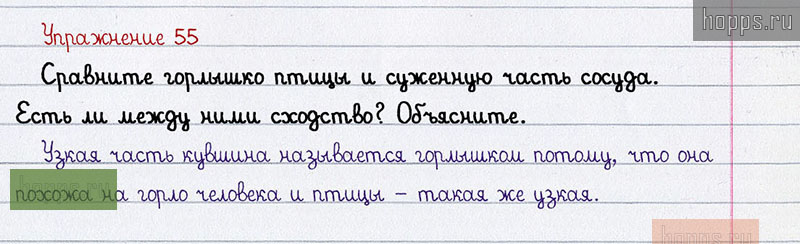 hopps.ru
Упражнение 55
Сравните горлышко птицы и суженную часть сосуда.
Есть ли между ними сходство? Объясните.
Узкая часть кувшина называется горлышком потому, что она
похожа на горло человека и птицы – такая же узкая.
hopps.ru